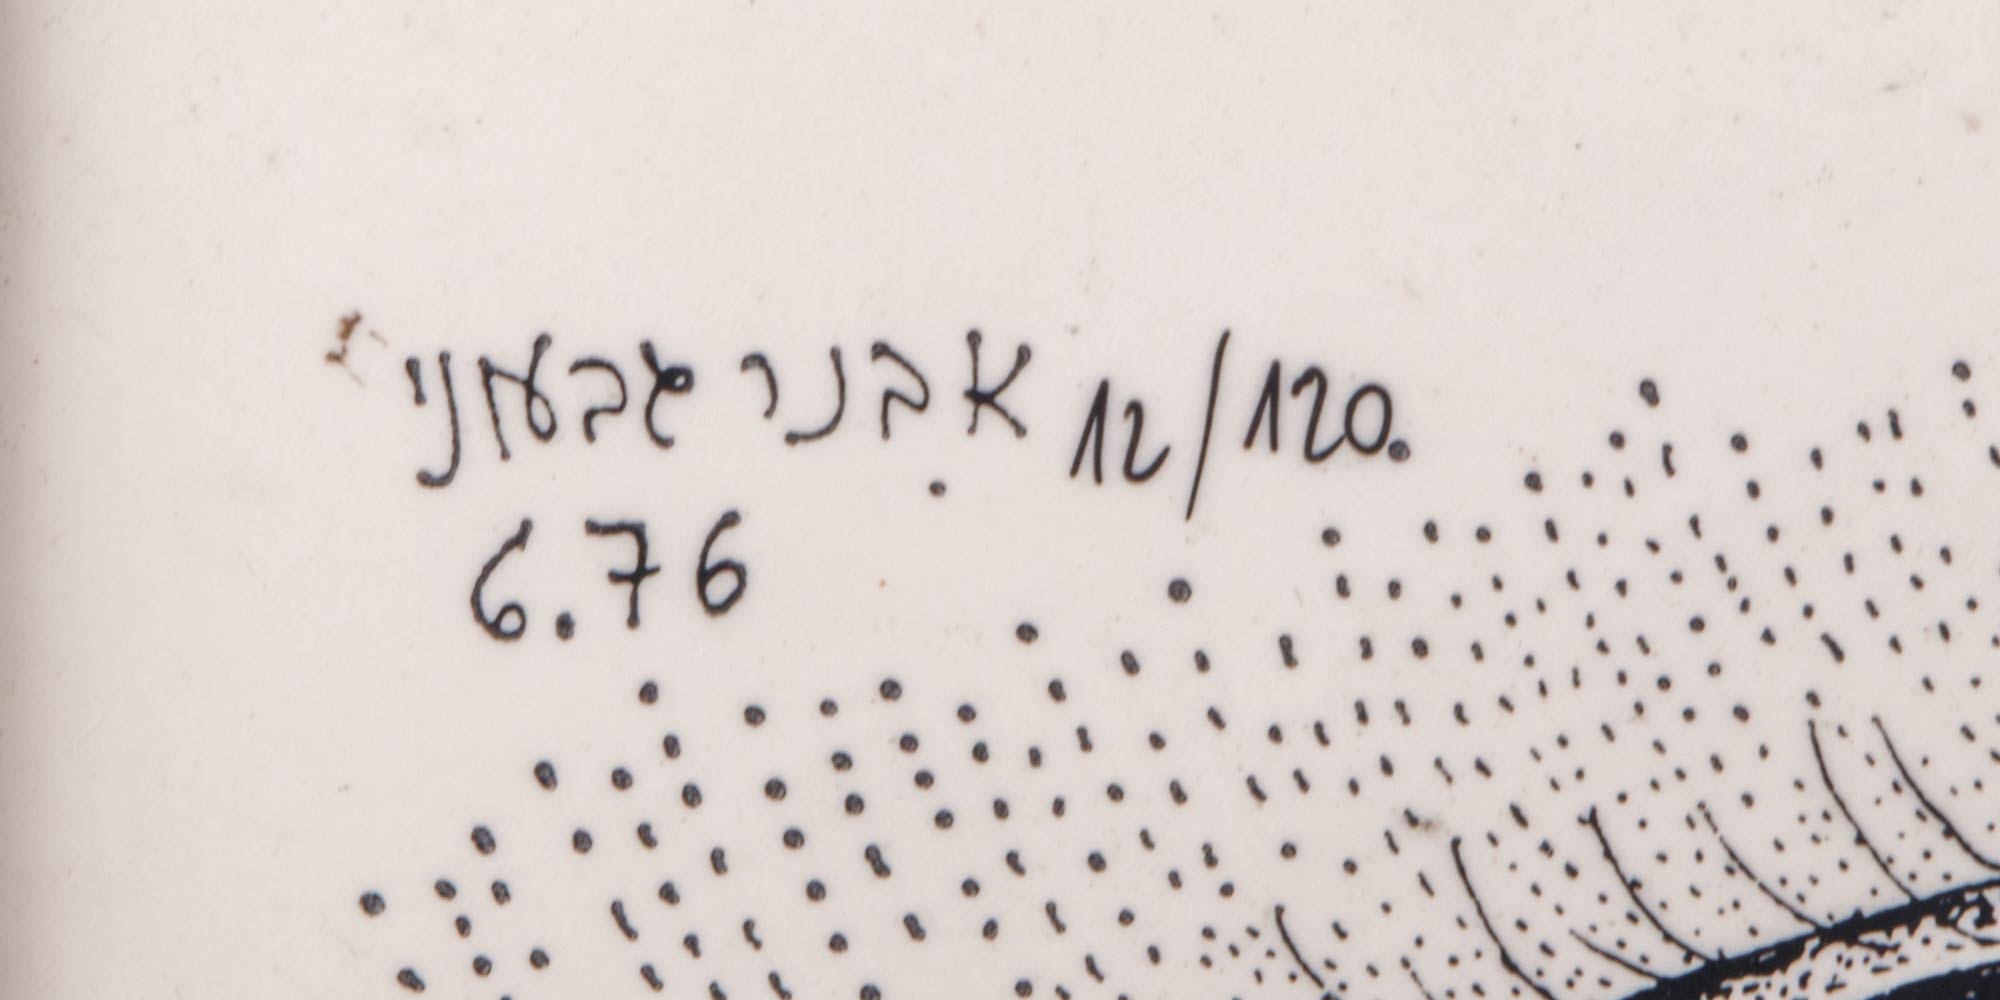 אבנר גבעוני 12/120.
6.76